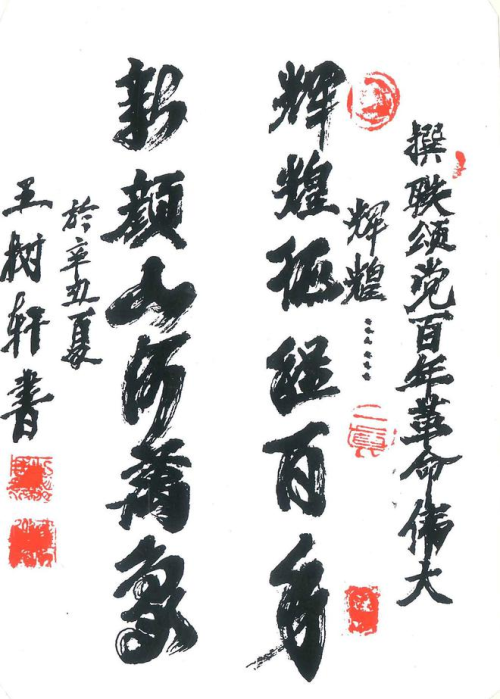 撰联颂党百年革命伟大
辉煌……
辉煌征程百年
新颜山河萬象
於辛丑夏
王树轩書